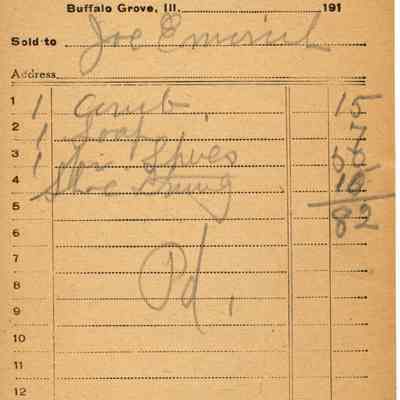 Buffalo Grove, Ill. 191
Sold to Joe Emerich
Address
1 1 Comb 15
2 1 Soap 7
3 1 50
4 Shoe String 10
5 82
6
7
8 Pd.
9
10
11
12